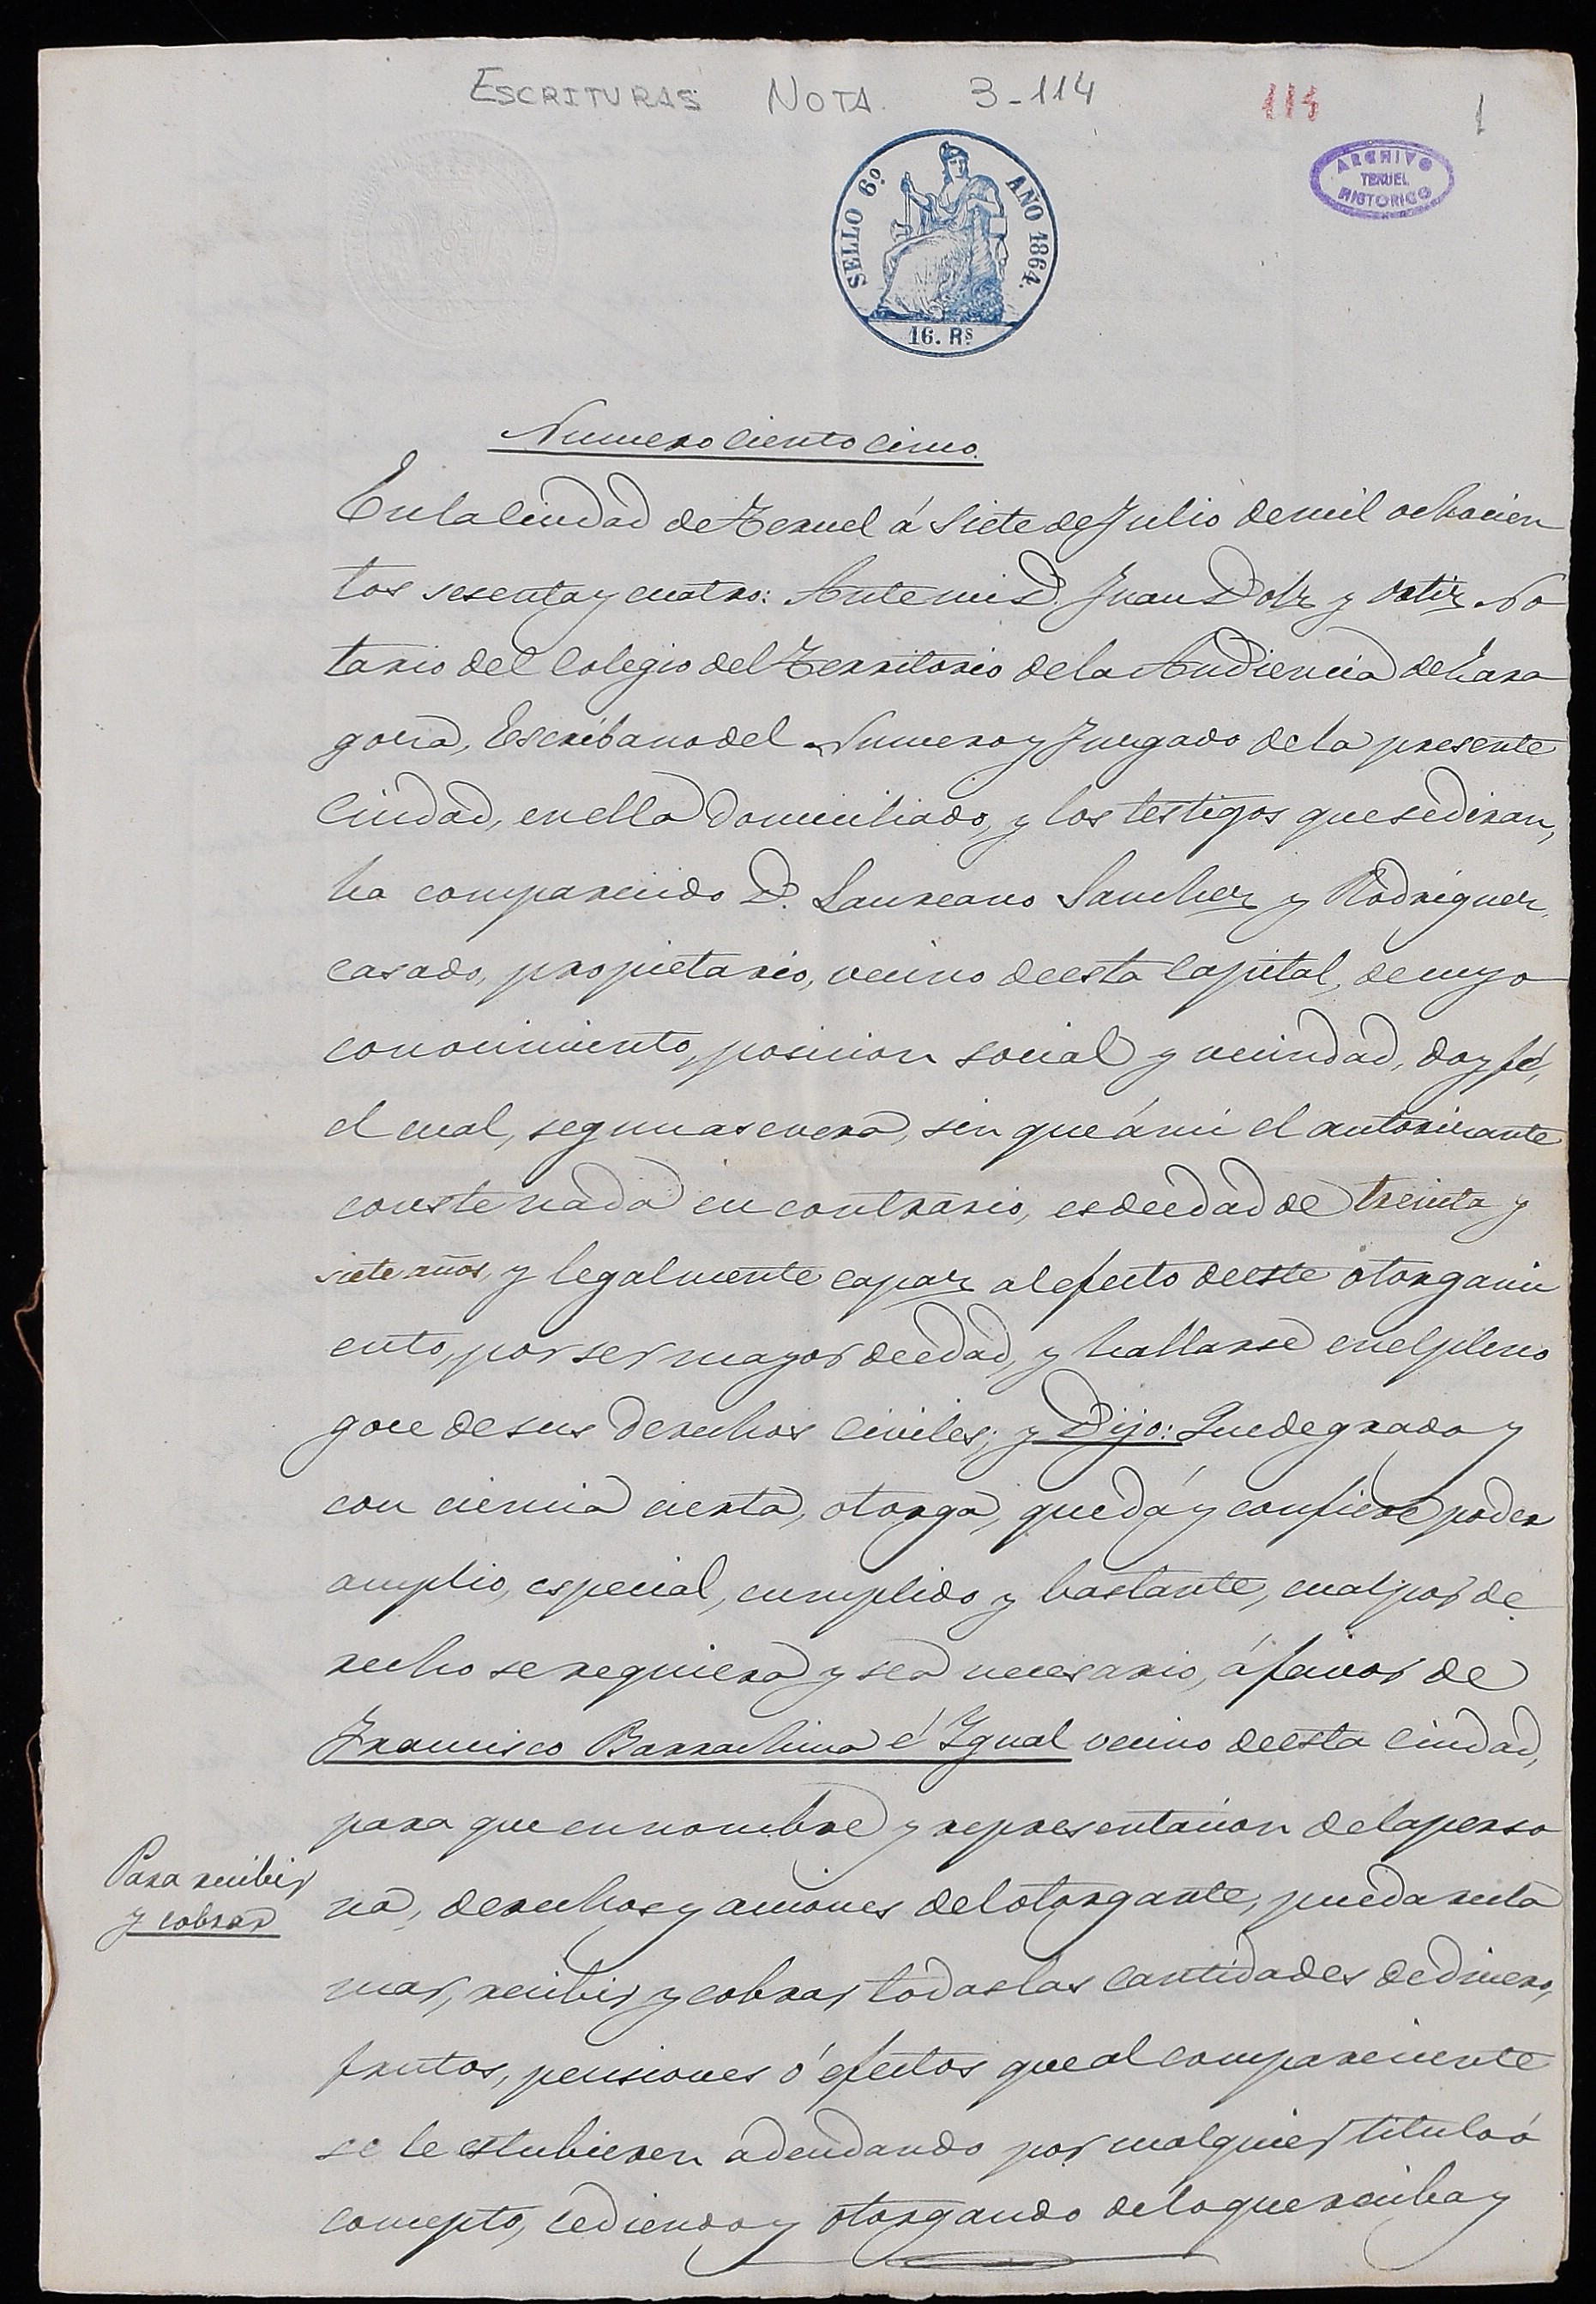 ESCRITURAS NOTA. 3-114
114
1
ARCHIVO
TERUEL
HISTORICO
SELLO 6º AÑO 1864.
16. Rs
Numero Ciento Cinco.
En la Ciudad de Teruel á Siete de Julio de mil ochocien
tos sesenta y cuatro: Ante mi D. Juan Dolz y Ortiz No
tario del Colegio del Territorio de la Audiencia de Zara
goza, Escribano del Numero y Juzgado de la presente
Ciudad, en ella domiciliado, y los testigos que se diran,
ha comparecido D. Laureano Sanchez y Rodriguez,
casado, propietario, vecino de esta Capital, de cuyo
conocimiento, posicion social y vecindad, doy fé,
el cual, segun asevera, sin que á mi el autorizante
conste nada en contrario, es de edad de treinta y
siete años, y legalmente capaz al efecto de este otorgami
ento, por ser mayor de edad, y hallarse en el pleno
goce de sus derechos Civiles; y Dijo: Que de grado y
con ciencia cierta, otorga, que dá y confiere poder
amplio, especial, cumplido y bastante, cual por de
recho se requiera y sea necesario, á favor de
Francisco Barrachina é Igual vecino de esta Ciudad,
para que en nombre y representacion de la perso
Para recibir
y cobrar
na, derechos y acciones del otorgante, pueda recla
mar, recibir y cobrar todas las cantidades de dinero,
frutos, pensiones ó efectos que al compareciente
se le estubieren adeudando por cualquier titulo ó
concepto, cediendo y otorgando de lo que reciba y